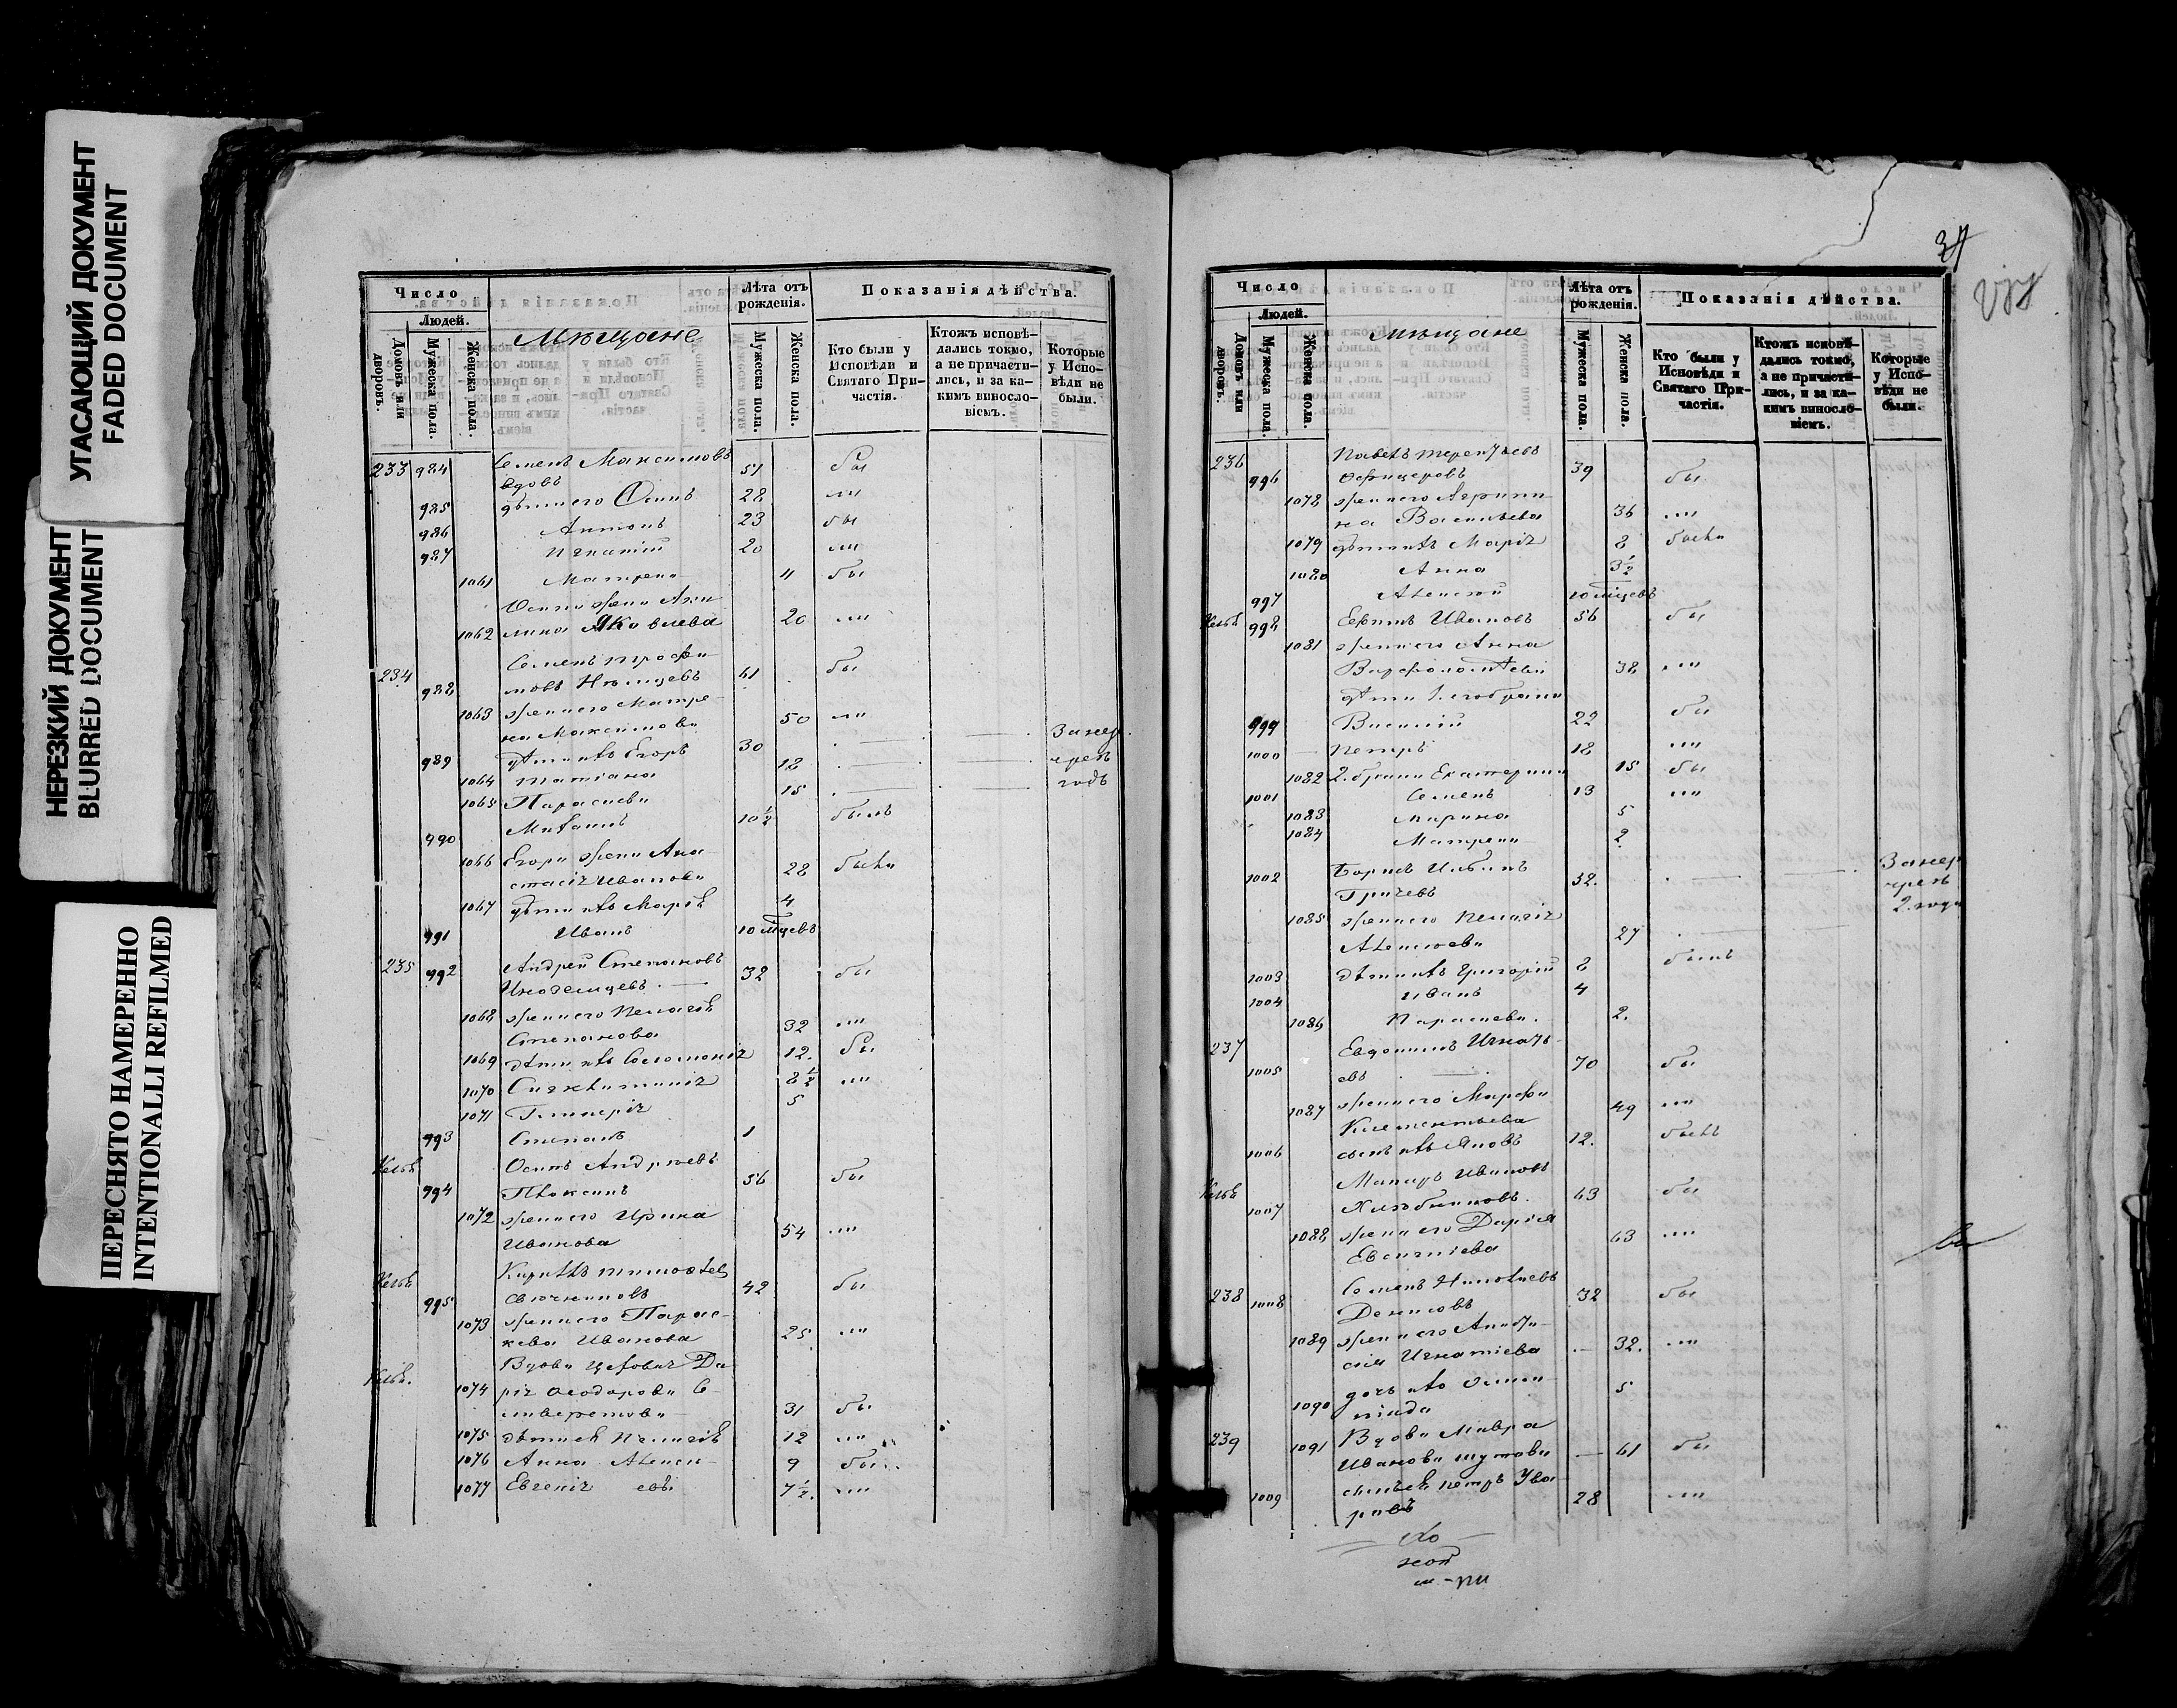 УГАСАЮЩИЙ ДОКУМЕНТ
FADED DOCUMENT
НЕРЕЗКИЙ ДОКУМЕНТ
BLURRED DOCUMENT
ПЕРЕСНЯТО НАМЕРЕННО
INTENTIONALLI REFILMED
Число
Людей.
Домовъ или дворовъ.
Мужеска пола.
Женска пола.
Мѣщане
Лѣта отъ рожденія.
Мужеска пола.
Женска пола.
Показанія дѣйства.
Кто были у Исповѣди и Святаго Причастія.
Ктожъ исповѣдались токмо, а не причастились, и за какимъ винословіемъ.
Которые у Исповѣди не были.
233 984 Семенъ Максимовъ вдовъ 51 бы
985 дѣти его Осипъ 28 ли
986 Антонъ 23 бы
987 Игнатій 20 ли
1061 Матрена 11 бы
Осипа жена Аки
1062 лина Яковлева 20 ли
Семенъ Трофи
234 988 мовъ Нѣмцевъ 61 бы
1063 жена его Матре
на Максимова 50 ли
989 дѣти ихъ Егоръ 30 За нер
1064 Татіана 18 чрезъ
1065 Параскева 15 годъ
990 Михаилъ 10 1/2 былъ
1066 Егора жена Ана
стасія Иванова 28 была
1067 дѣти ихъ Марія 4
991 Иванъ 10 мцевъ
235 992 Андрей Степановъ 32 бы
Иноземцевъ
1068 жена его Пелагія
Степанова 32 ли
1069 дѣти ихъ Соломонія 12. бы
1070 Синклитикія 8 1/2 ли
1071 Гликерія 5
993 Степанъ 1
Осипъ Андреевъ
994 Плаксинъ 56 бы
1072 жена его Ирина
Иванова 54 ли
Кирилъ Тимофѣев
995 42 бы
1073 жена его Парас-
кева Иванова 25 ли
Вдова Да
1074 рія Феодорова С
31 бы
1075 дѣти ея Пелагія 12 ли
1076 Анна 9 бы
1077 Евгенія 7 1/2. ли
37
Число
Людей.
Домовъ или дворовъ.
Мужеска пола.
Женска пола.
Мѣщане
Лѣта отъ рожденія.
Мужеска пола.
Женска пола.
Показанія дѣйства.
Кто были у Исповѣди и Святаго Причастія.
Ктожъ исповѣдались токмо, а не причастились, и за какимъ винословіемъ.
Которые у Исповѣди не были.
236 Павелъ Терентьевъ
996 Офицеровъ 39 бы
1078 жена его Агрипи
на Васильева 36 ли
1079 дѣти ихъ Марія 8 была
1080 Анна 3 1/2
997 Алексѣй 10 мцевъ
998 Ефимъ Ивановъ 56 бы
1081 жена его Анна
Варфоломѣева 38 ли
дѣти 1-го брака
999 Василій 22 бы
1000 Петръ 18 ли
1082 2. брака Екатерина 15 бы
1001 Семенъ 13 ли
1083 Марина 5
1084 Матрена 2
1002 Борисъ За нер
32. чрезъ
1085 жена его Пелагія 2. года
Алексѣева 27
1003 дѣти ихъ Григорій 8 былъ
1004 Иванъ 4
1086 Параскева. 2.
237 Евдокимъ Игнать
1005 евъ 70 бы
1087 жена его Марфа
Климентьева 49 ли
1006 сынъ ихъ Яковъ 12. былъ
Макаръ Ивановъ
1007 Хлѣбниковъ. 63 бы
1088 жена его Дарія
Евсигніева 63 ли
238 1008 Семенъ 32 бы
Денисовъ
1089 жена его Анаста
сія Игнатіева 32. ли
дочь ихъ Олим
1090 піада 5
239 1091 Вдова Мавра
Иванова 61 бы
1009 сынъ ея Петръ Ува
ровъ 28 ли